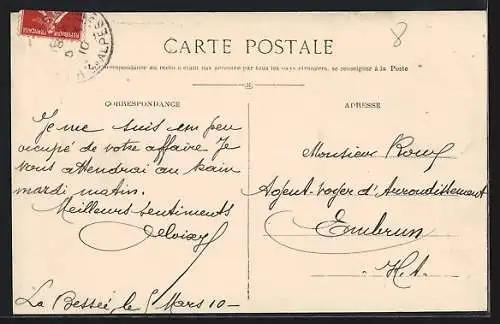 8
CARTE POSTALE
La Correspondance au recto n'étant pas acceptée par tous les pays étrangers, se renseigner à la Poste
CORRESPONDANCE
Je me suis un peu
occupé de votre affaire. Je
vous attendrai au train
mardi matin.
Meilleurs sentiments
La Bessée, le 5 Mars 10 -
ADRESSE
Monsieur Roux
Agent-voyer d'Arrondissement
Embrun
H.A.